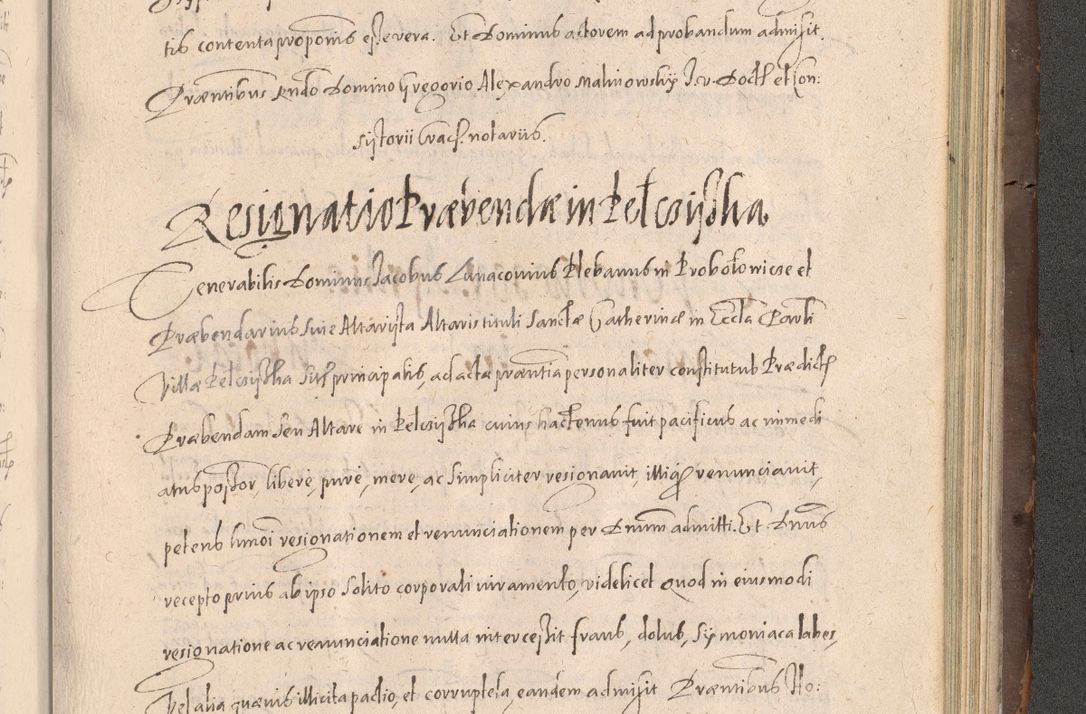 tis contenta proponis esse vera. Et Dominus actorem ad probandum admisit.
Præntibus Rndo Domino Gregorio Alexandro Malinowsky J. v. Doct. et Con:
sistorii Crac. notariis.
Resignatio Præbendæ in Pełczyska
Venerabilis Dominus Jacobus Lunacovius Plebanus in Probołowicze et
Præbendarius sive Altarista Altaris tituli Sanctæ Catherinæ in Eccla Parli
Villæ Pełczyska principalis, ad acta præntia personaliter constitutus Prædict
Præbendam seu Altare in Pelczyska cuius hactenus fuit pacificus ac immedi
atus possor, libere, pure, mere, ac simpliciter resignavit, illiq renunciavit,
petens resignationem et renunciationem per Dnum admitti. Et Dnus
recepto prius ab ipso solito corporali iuramento, videlicet quod in eiusmodi
resignatione ac renunciatione nulla intercessit fraus, dolus, symoniaca labes,
Vel alia quævis illicita pactio, et corruptela, eandem admisit Præntibus Ho: